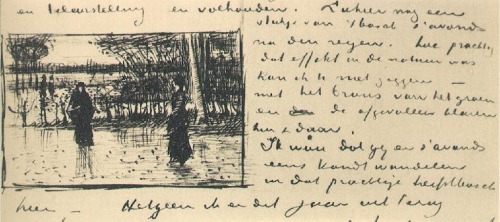 en teleurstelling en volhouden. Ziehier nog een
van 't Bosch s'avonds
na den regen. hoe prachtig
dat effekt in de natuur was
kan ik U niet zeggen —
met het brons van het groen
en de afgevallen blaren
hier & daar.
Ik wou dat gij s'avonds
eens kondt wandelen
in dat prachtige herfstbosch
hier — Hetgeen ik er dit jaar uit terug